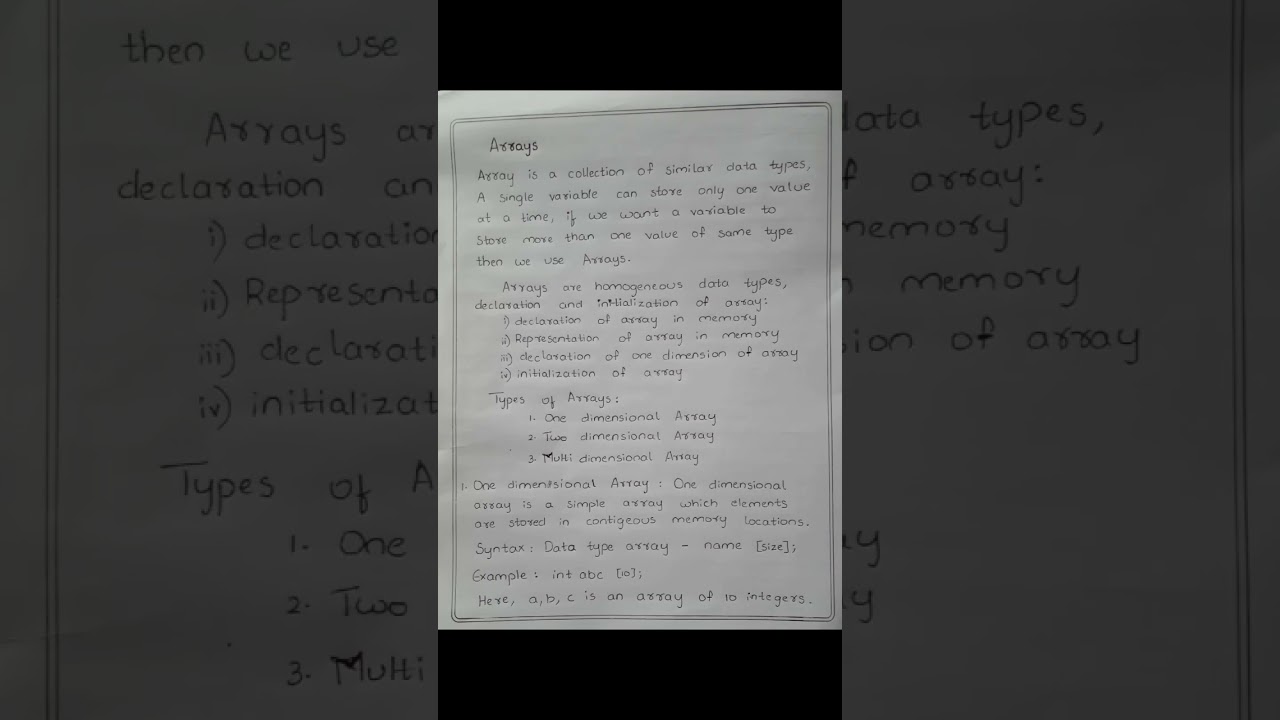 Arrays
Array is a collection of similar data types,
A single variable can store only one value
at a time, if we want a variable to
store more than one value of same type
then we use Arrays.
Arrays are homogeneous data types,
declaration and initialization of array:
i) declaration of array in memory
ii) Representation of array in memory
iii) declaration of one dimension of array
iv) initialization of array
Types of Arrays:
1. One dimensional Array
2. Two dimensional Array
3. Multi dimensional Array
1. One dimensional Array : One dimensional
array is a simple array which elements
are stored in contigeous memory locations.
Syntax : Data type array - name [size];
Example : int abc [10];
Here, a,b,c is an array of 10 integers.
then we use
Arrays ar
data types,
declaration an
f array:
i) declaratio
memory
ii) Representa
n memory
iii) declarati
sion of array
iv) initializat
Types of A
1. One
ay
2. Two
ay
3. Multi